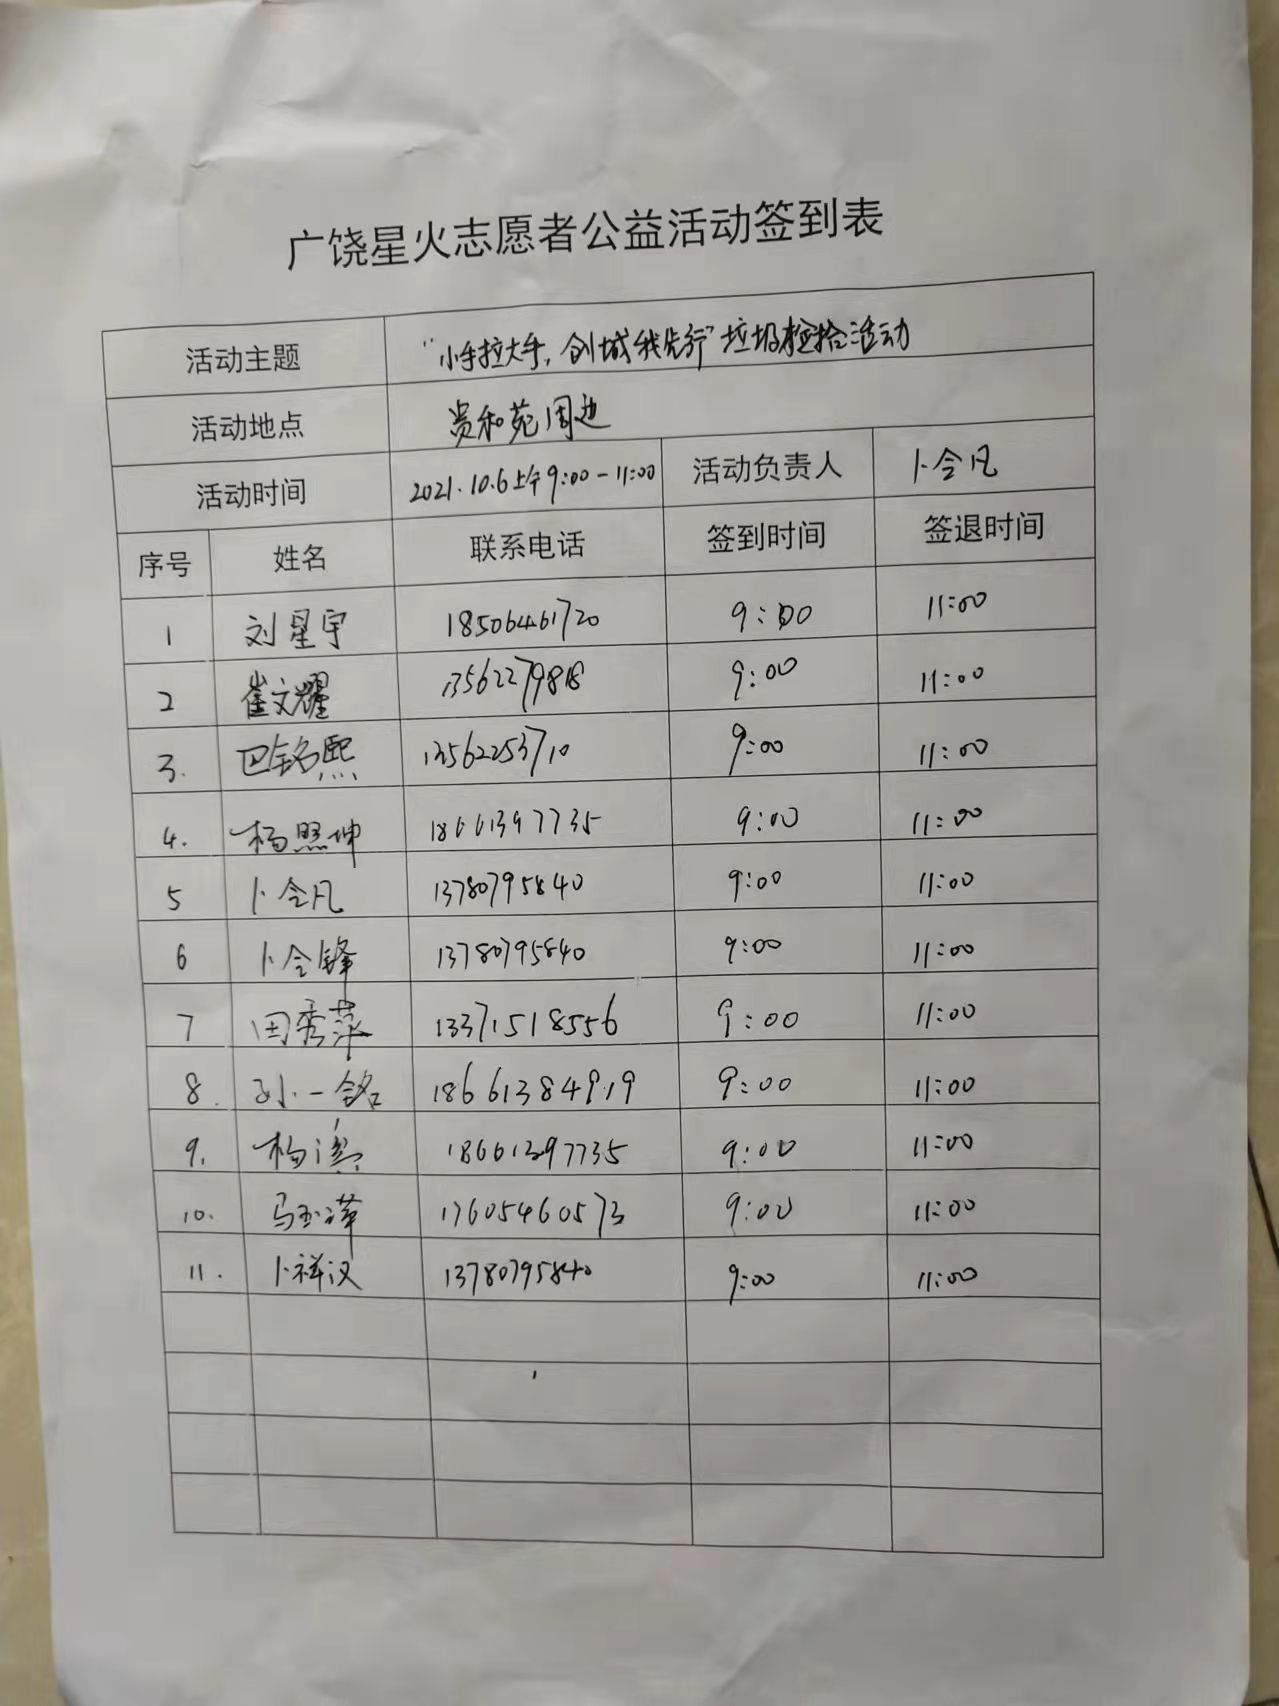 广饶星火志愿者公益活动签到表
活动主题 "小手拉大手，创城我先行"垃圾捡拾活动
活动地点 贵和苑周边
活动时间 2021.10.6上午9:00-11:00 活动负责人 卜令凡
序号 姓名 联系电话 签到时间 签退时间
1 刘星宇 18506461720 9:00 11:00
2 崔文耀 13562279818 9:00 11:00
3. 巴铭熙 13562253710 9:00 11:00
4. 杨照坤 18661397735 9:00 11:00
5 卜令凡 13780795840 9:00 11:00
6 卜令锋 13780795840 9:00 11:00
7 田秀萍 13371518556 9:00 11:00
8. 孙一铭 18661384919 9:00 11:00
9. 杨 18661397735 9:00 11:00
10. 马玉泽 17605460573 9:00 11:00
11. 卜祥汉 13780795840 9:00 11:00